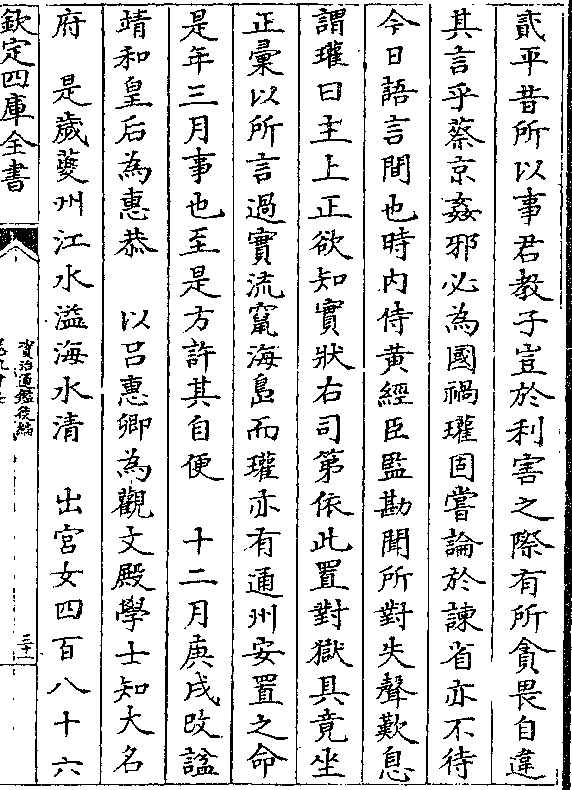 貳平昔所以事君教子豈於利害之際有所貪畏自違
其言乎蔡京姦邪必為國禍瓘固嘗論於諫省亦不待
今日語言間也時内侍黄經臣監勘聞所對失聲歎息
謂瓘曰主上正欲知實狀右司第依此置對獄具竟坐
正彙以所言過實流竄海島而瓘亦有通州安置之命
是年三月事也至是方許其自便　十二月庚戌改諡
靖和皇后為惠恭　以吕惠卿為觀文殿學士知大名
府　是歳夔州江水溢海水清　出宫女四百八十六
欽定四庫全書
資治通鑑後編
三十一